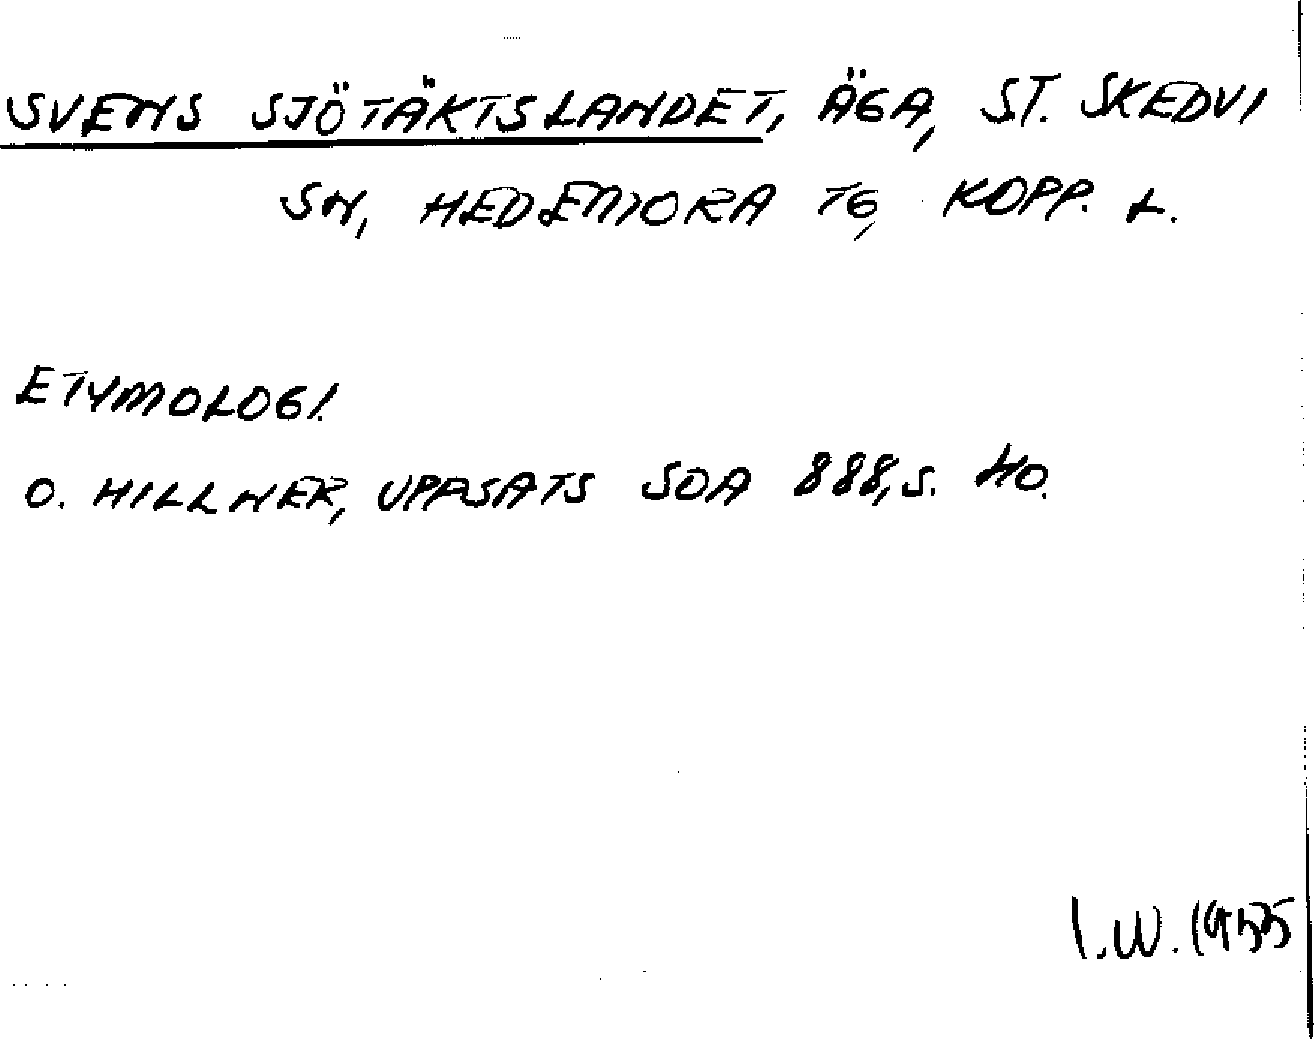 SVENS SJÖTÄKTSLANDET, ÄGA, ST. SKEDVI
SN, HEDEMORA TG, KOPP. L.
ETYMOLOGI.
O. HILLNER, UPPSATS SOA 888, S. 40.
I.W. 1955